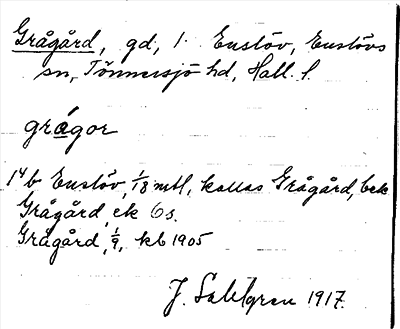 Grågård, gd, 1. Enslöv, Enslövs
sn, Tönnersjö hd, Hall. l.
grágor
1⁴b Enslöv, 1/18 mtl, kallas Grågård, bek
Grågård, ek 6 s.
Grågård, 1/9, kb 1905
J. Sahlgren 1917.